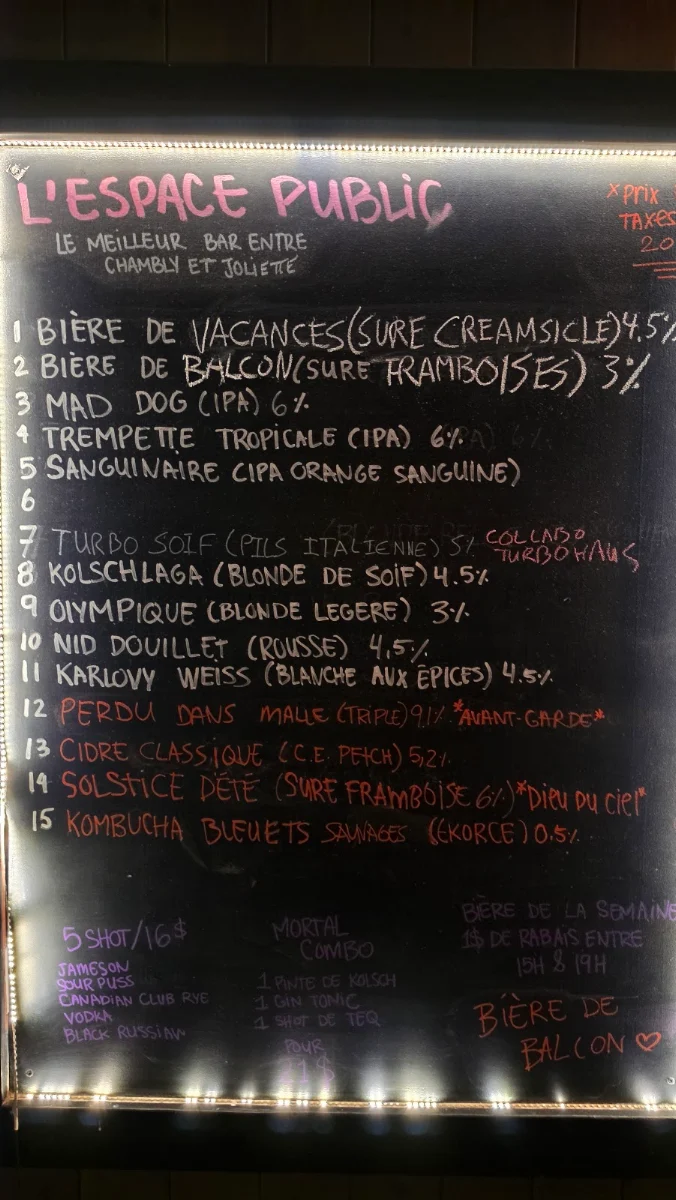 L'ESPACE PUBLIC
LE MEILLEUR BAR ENTRE
CHAMBLY ET JOLIETTE
* PRIX
TAXES
20
1 BIÈRE DE VACANCES (SURE CREAMSICLE) 4.5%
2 BIÈRE DE BALCON (SURE FRAMBOISES) 3%
3 MAD DOG (IPA) 6%
4 TREMPETTE TROPICALE (IPA) 6%
5 SANGUINAIRE (IPA ORANGE SANGUINE)
6
7 TURBO SOIF (PILS ITALIENNE) 5% COLLABO
TURBOHAUS
8 KOLSCHLAGA (BLONDE DE SOIF) 4.5%
9 OLYMPIQUE (BLONDE LEGERE) 3%
10 NID DOUILLET (ROUSSE) 4,5%
11 KARLOVY WEISS (BLANCHE AUX ÉPICES) 4.5%
12 PERDU DANS MALLE (TRIPLE) 9,1% *AVANT-GARDE*
13 CIDRE CLASSIQUE (C.E. PETCH) 5,2%
14 SOLSTICE D'ÉTÉ (SURE FRAMBOISE 6%) *DIEU DU CIEL*
15 KOMBUCHA BLEUETS SAUVAGES (ÉKORCE) 0.5%
5 SHOT/16$
JAMESON
SOUR PUSS
CANADIAN CLUB RYE
VODKA
BLACK RUSSIAN
MORTAL
COMBO
1 PINTE DE KOLSCH
1 GIN TONIC
1 SHOT DE TEQ
POUR
BIÈRE DE LA SEMAINE
1$ DE RABAIS ENTRE
15H & 19H
BIÈRE DE
BALCON ♡